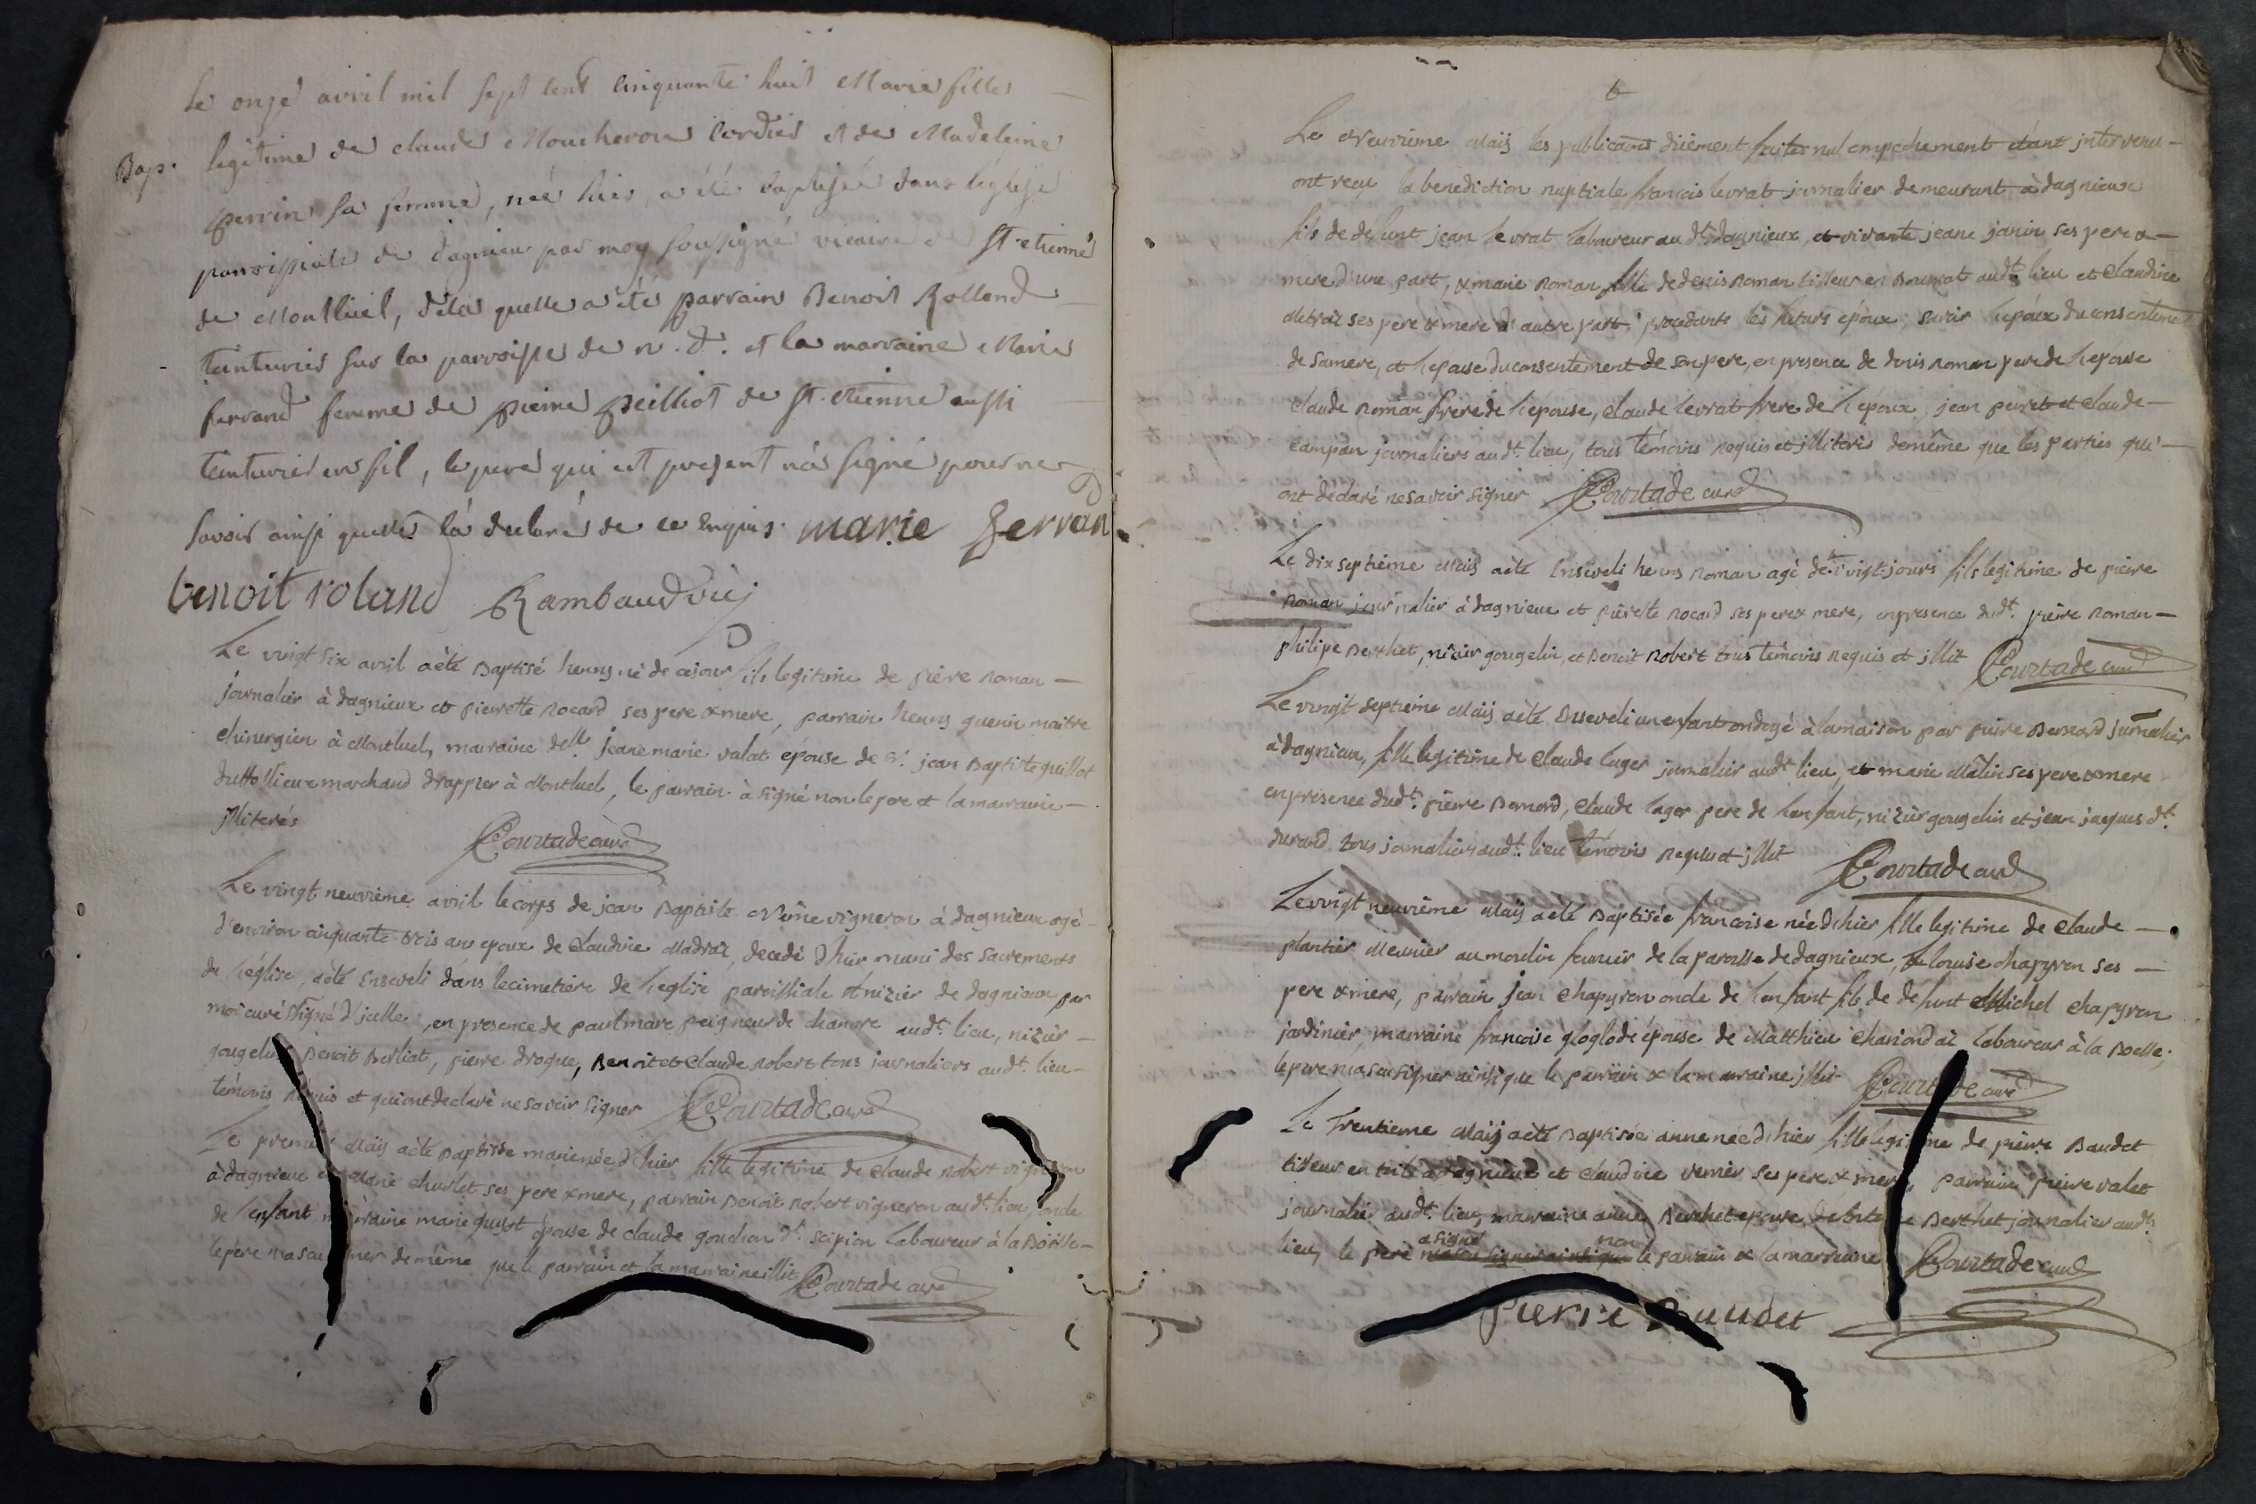 Le onze avril mil sept cent cinquante huit Marie fille
Bap. legitime de claude Moucheron Cordier et de Madeleine
perrin sa femme, née hier, a été baptisée dans l'eglise
parroissiale de dagnieu par moy soussigné vicaire de St. etienne
de Montluel, de la quelle a été parrain Benoit Rolland
teinturier sur la parroisse de n. d. et la marraine Marie
ferrand femme de pierre peilliot de St. etienne aussi
teinturier en fil, le pere qui est present n'a signé pour ne
savoir ainsi qu'elle l'a declaré de ce enquis. marie ferrand
benoit roland Rambaud vic.
Le vingt six avril a èté Baptisé henry né de ce jour fils legitime de piere Roman
journalier à dagnieux et pierrette Rocard ses pere & mere, parrain henry guenin maitre
chirurgien à Montluel, marraine delle jeane marie valat épouse de Sr. jean Baptiste guillot
marchand drappier à Montluel, le parrain à signé non le pere et la marraine
jlliterés Courtade curé
Le vingt neuvième avril le corps de jean Baptiste vigneron à dagnieux agé
d'environ cinquante trois ans epoux de Claudine Madraz, decedé d'hier muni des sacrements
de l'église, a èté Enseveli dans le cimetière de l'eglise paroissiale St nizier de dagnieux par
moi curé Signé d'jcelle, en presence de paul mare peigneur de chanvre aud.t lieu, nizier
gougelin Benoit Berliat, pierre drogue, Benoit et Claude Robert tous journaliers aud.t lieu
temoins requis et qui ont declaré ne savoir signer Courtade curé
Le premier Maij a èté Baptisée marie née d'hier fille legitime de Claude Robert vigneron
à dagnieux et Marie Charlet ses pere & mere, parrain Benoit Robert vigneron aud.t lieu, oncle
de l'enfant marraine marie guyot épouse de claude gonchon d.t scipion laboureur à la Boisse
le père n'a su signer de même que le parrain et la marraine illit. Courtade curé
6
Le Neuvième Maij les publications düement faites nul empechement etant jntervenu
ont reçu la benediction nuptiale francois levrat journalier demeurant à dagnieux
fils de defunt jean levrat laboureur au dt. dagnieux et vivante jeane janin ses pere &
mere d'une part, & marie Roman fille de denis Roman tilleur en aud.t lieu et Claudine
Metraz ses pere & mere d'autre part, procedants les futurs époux, savoir l'epoux du consentement
de sa mere, et l'epouse du consentement de son pere, en presence de denis Roman pere de l'epouse
Claude Roman frere de l'épouse, Claude levrat frere de l'époux jean peiret et Claude
Campan journaliers aud.t lieu, tous témoins Requis et jlliterés de même que les parties qui
ont declaré ne savoir signer Courtade curé
Le dix septième Maij a èté Enseveli henry Roman agé de vigt jours fils legitime de pierre
Roman journalier à dagnieux et pierette Rocard ses pere & mere, en presence dud.t pierre Roman
philipe Berthet, nizier gougelin, et Benoit Robert tous temoins Requis et jllit Courtade curé
Le vingt septième Maij a èté Enseveli un enfant ondoyé à la maison par pierre Bernard journalier
à dagnieux, fille legitime de Claude luger journalier aud.t lieu, et marie Malin ses pere & mere
en presence dud.t pierre Bernard, Claude luger pere de l'enfant, nizier gougelin et jean jaques d.t
durand tous journaliers aud.t lieu témoins Requis et jllit Courtade curé
Le vigt neuvième Maij a èté Baptisée francoise née d'hier fille legitime de Claude
plantier Meunier au moulin de la paroisse de dagnieux, & louise chapyron ses
pere & mere, parrain jean Chapyron oncle de l'enfant fils de defunt Michel Chapyron
jardinier, marraine francoise gloglode épouse de Matthieu laboureur à la Boësse;
le pere n'a su signer ainsi que le parrain & la marraine jllit. Courtade curé
Le Trentieme Maij a èté Baptisée anne née d'hier fille legitime de pierre Baudet
tisseur en toile a dagnieux et Claudine verrier ses pere & mere, parrain pierre valet
journalier aud.t lieu, marraine anne Berthet epouse Berthet journalier aud.t
lieu, le pere a signé n'a su signer ainsi que non le parrain & la marraine Courtade curé
Pierre Baudet